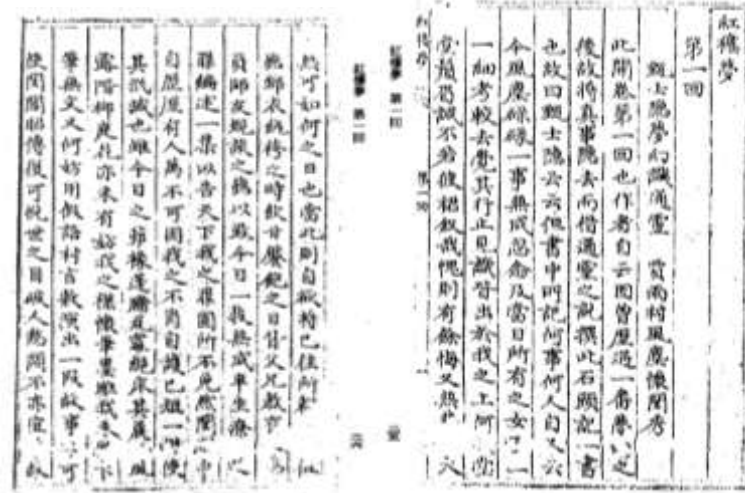 紅樓夢
第一回
甄士隱夢幻識通靈 賈雨村風塵懷閨秀
此開卷第一回也作者自云因曾歷過一番夢幻之
後故將真事隱去而借通靈之說撰此石頭記一書
也故曰甄士隱云云但書中所記何事何人自又云
今風塵碌碌一事無成忽念及當日所有之女子一
一細考較去覺其行止見識皆出於我之上何
堂鬚眉誠不若彼裙釵我愧則有餘悔又無
紅樓夢 第一回
紅樓夢 第一回
無可如何之日也當此則自欲將已往所
錦衣紈袴之時飫甘饜肥之日背父兄教育
負師友規談之德以致今日一技無成半生潦
罪編述一集以告天下我之罪固所不免然閨中
自歷歷有人萬不可因我之不肖自護已短一併使
其泯滅也雖今日之茆椽蓬牖瓦灶繩床其晨
露階柳庭花亦未有妨我之襟懷筆墨雖我未
筆無文又何妨用假語村言敷演出一段故事可
使閨閣昭傳復可悅世之目破人愁悶不亦宜